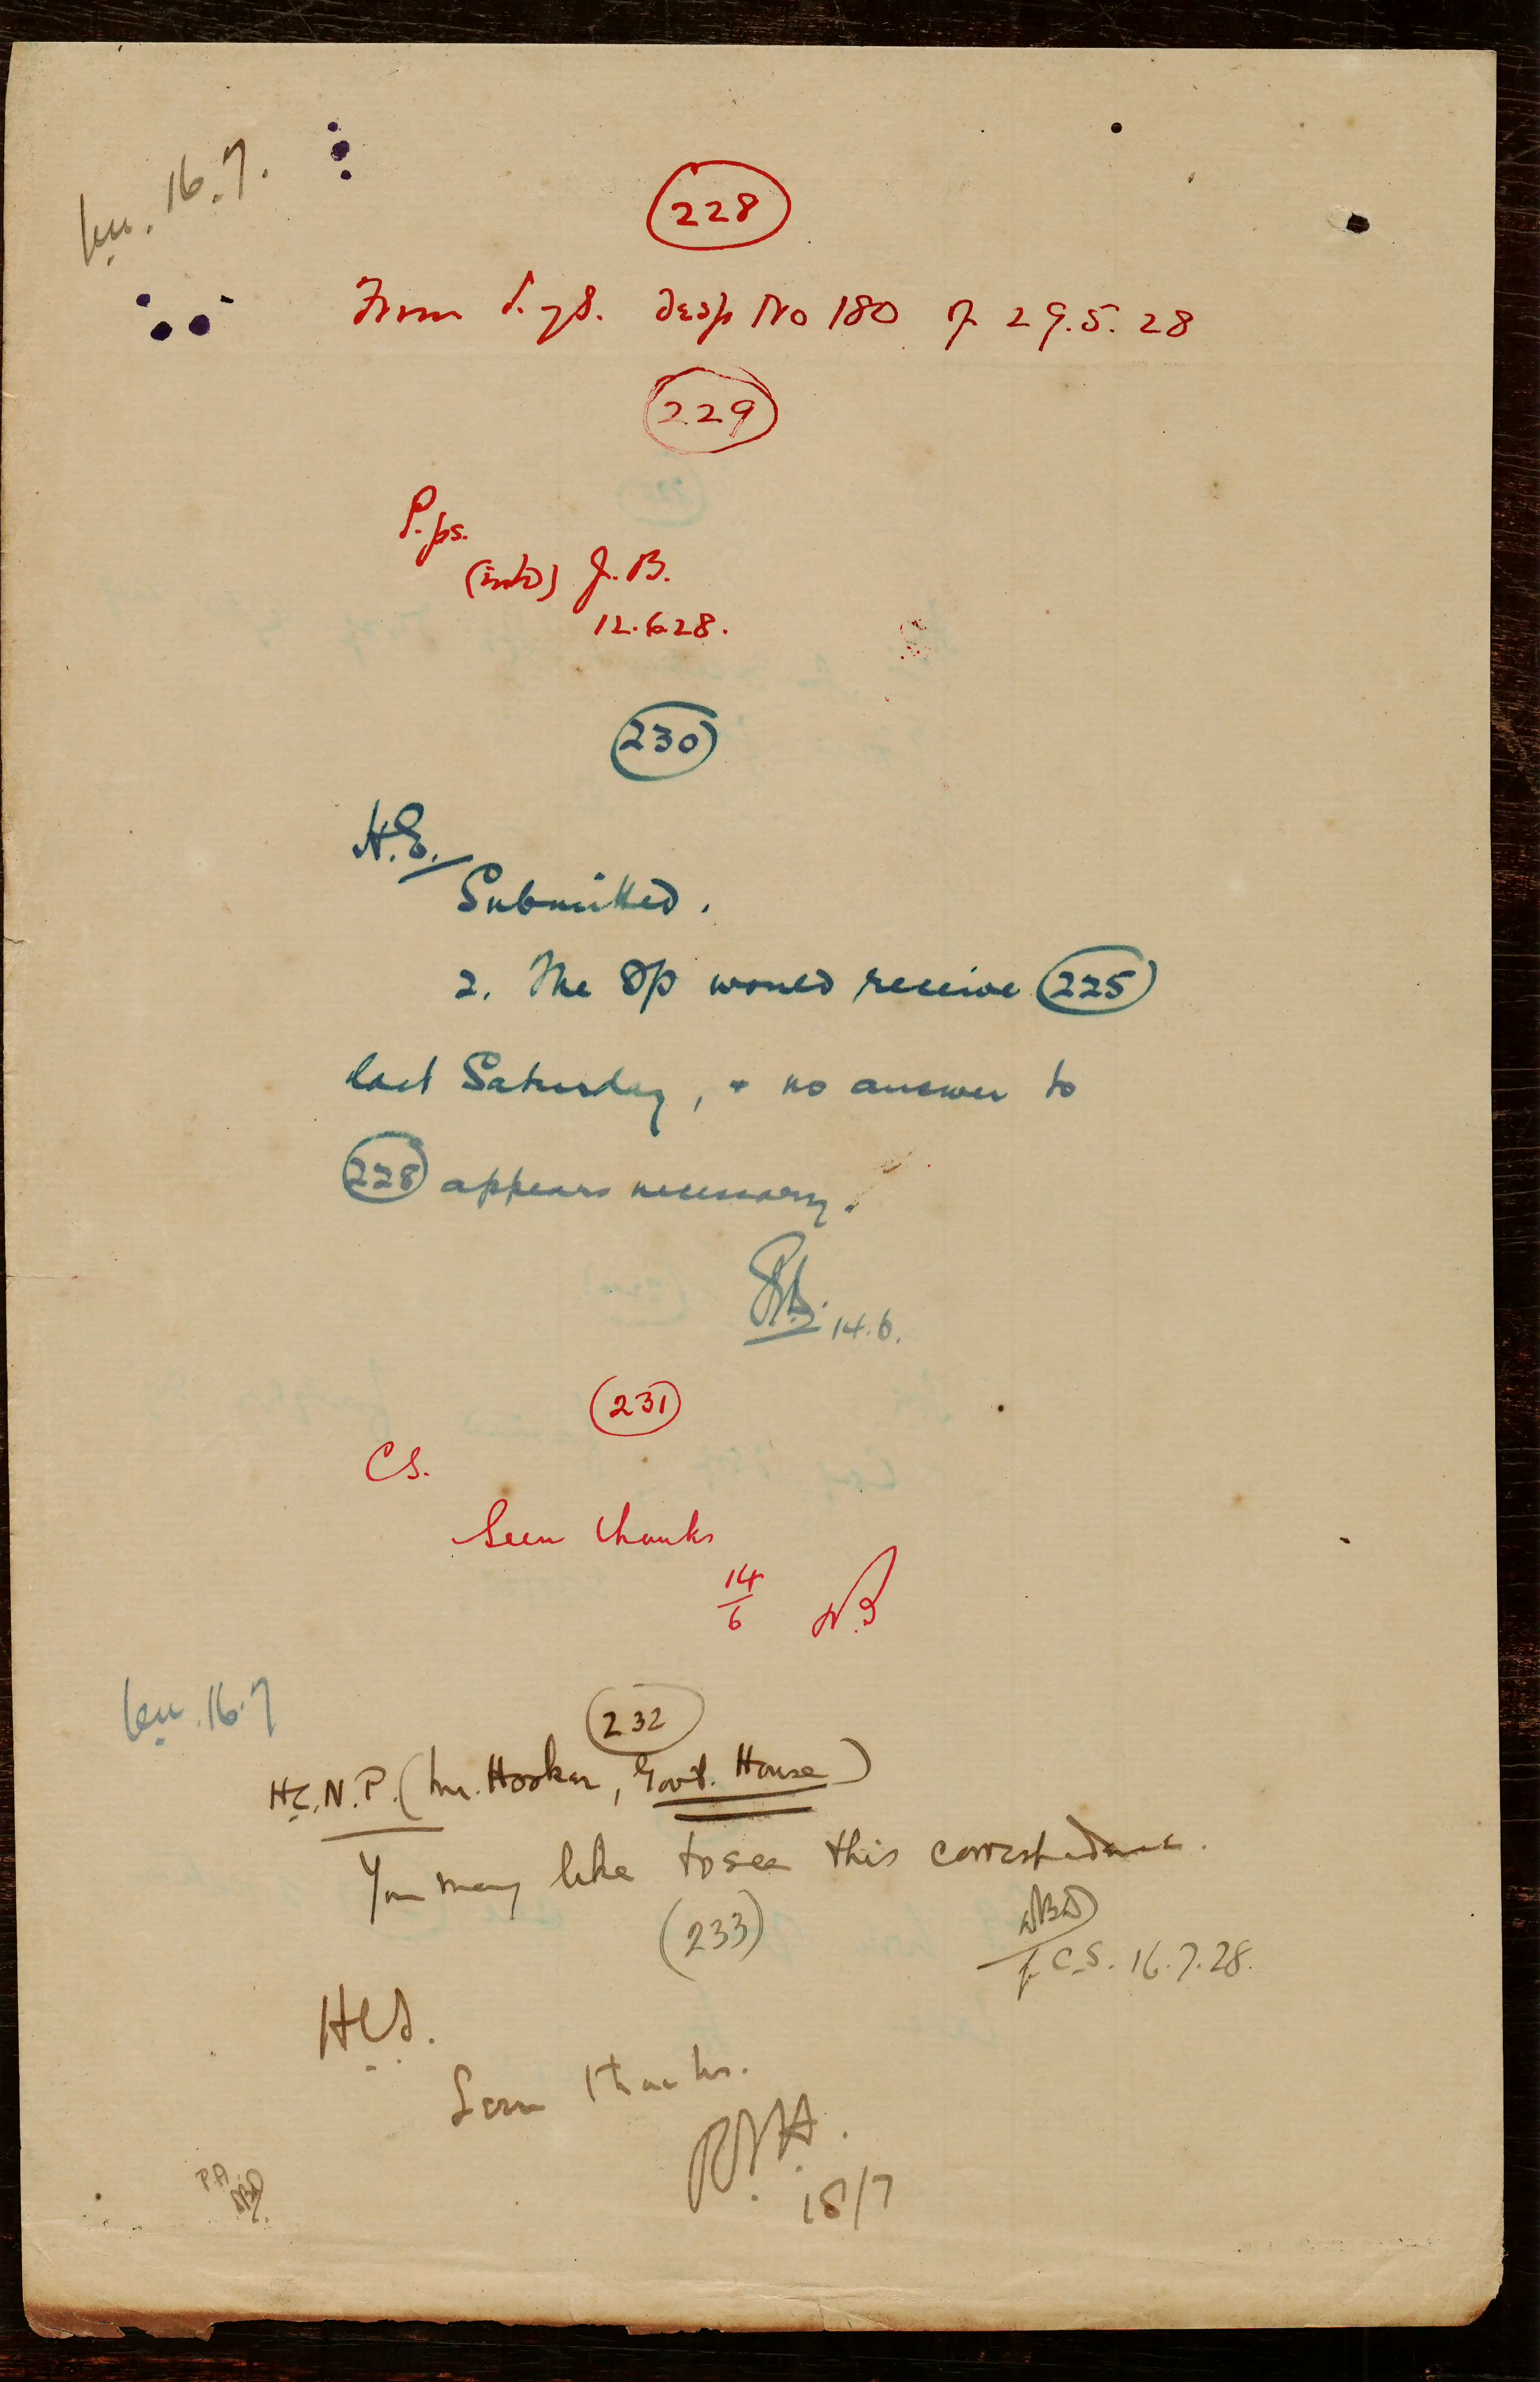 16.7.
228
From S. of S. desp No 180 of 29.5.28
229
P. ps.
(intd) J.B.
12.6.28.
230
H.E.
Submitted.
2. The SP would receive 225
last Saturday, + no answer to
228 appears necessary.
14.6.
231
C.S.
Seen thanks
14/6
16.7
232
H.C.N.P. (Mr. Hooker, Govt. House)
You may like to see this correspondence.
f. C.S. 16.7.28.
233
H.C.S.
Seen thanks.
18/7
P.A.